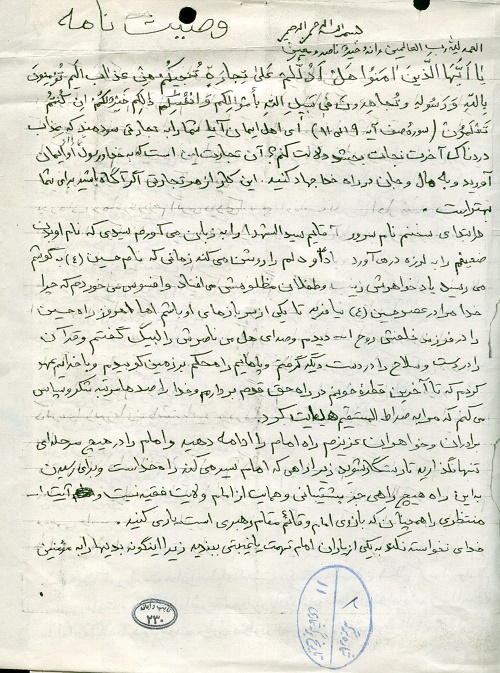 وصیت نامه
بسم الله الرحمن الرحیم
الحمد لله رب العالمین و انه خیر ناصر و معین
یا اَیُّها الَّذینَ امَنوا هَل اَدُلُّکُم عَلی تِجارَةٍ تُنجیکُم مِن عذاب الیم تُؤمِنونَ
بِاللهِ وَ رَسولِهِ وَ تُجاهِدونَ فی سَبیلِ اللهِ بِأموالِکُم وَ اَنفُسِکُم ذالِکُم خَیرٌ لَکُم اِن کُنتُم
تَعلَمُون (سوره صف آیه ۹ الی ۱۱) ای اهل ایمان آیا شما را به تجارتی سودمند که از عذاب
دردناک آخرت نجات بخشد دلالت کنم؟ آن تجارت این است که به خدا و رسول او ایمان
آورید و به مال و جان در راه خدا جهاد کنید. این کار از هر تجارتی اگر آگاه باشید برای شما
بهتر است.
در ابتدای سخنم نام سرور آقایم سید الشهدا را به زبان می آورم سیدی که نام او بدن
ضعیفم را به لرزه در می آورد یاد او دلم را روشن می کند زمانی که نام حسین (ع) به گوشم
می رسد یاد خواهرش زینب و طفلان مظلومش می افتم و افسوس می خوردم که چرا
خدا مرا در عصر حسین (ع) نیافرید تا یکی از سربازهای او باشم اما امروز راه حسین
را در فرزند خلفش روح الله دیدم و صدای هل من ناصرش را لبیک گفتم و قرآن
را در دست و سلاح را در دست دیگر گرفتم و پاهایم را محکم بر زمین کوبیدم و با خدایم عهد
کردم که تا آخرین قطره خونم در راه حق قدم بردارم و خدا را صدها مرتبه شکر و سپاس
می کنم که مرا به صراط المستقیم هدایت کرد.
برادران و خواهران عزیزم راه امام را ادامه دهید و امام را در هیچ مرحله ای
تنها نگذارید تا رستگار شوید زیرا راهی که امام سیر می کند راه خداست و برای رسیدن
به این راه هیچ راهی جز پشتیبانی و حمایت از امام و ولایت فقیه نیست و آیت الله
منتظری را همچنان که بازوی امام و قائم مقام رهبری است یاری کنید.
خدای نخواسته نکند به یکی از یاران امام تهمت یا غیبتی ببندید زیرا اینگونه بدیها را به مؤمنین
۲۳۰
۲
۱۱